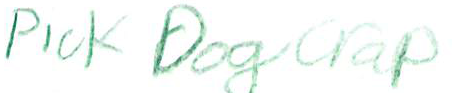 Pick Dog Crap